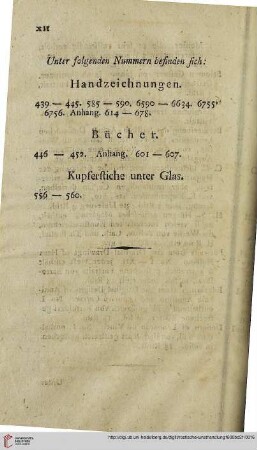 XII
Unter folgenden Nummern befinden ſich:
Handzeichnungen.
439 — 445. 585 — 590. 6590 — 6634. 6755.
6756. Anhang. 614 — 678.
Bücher.
446 — 452. Anhang. 601 — 607.
Kupferſtiche unter Glas.
556 — 560.